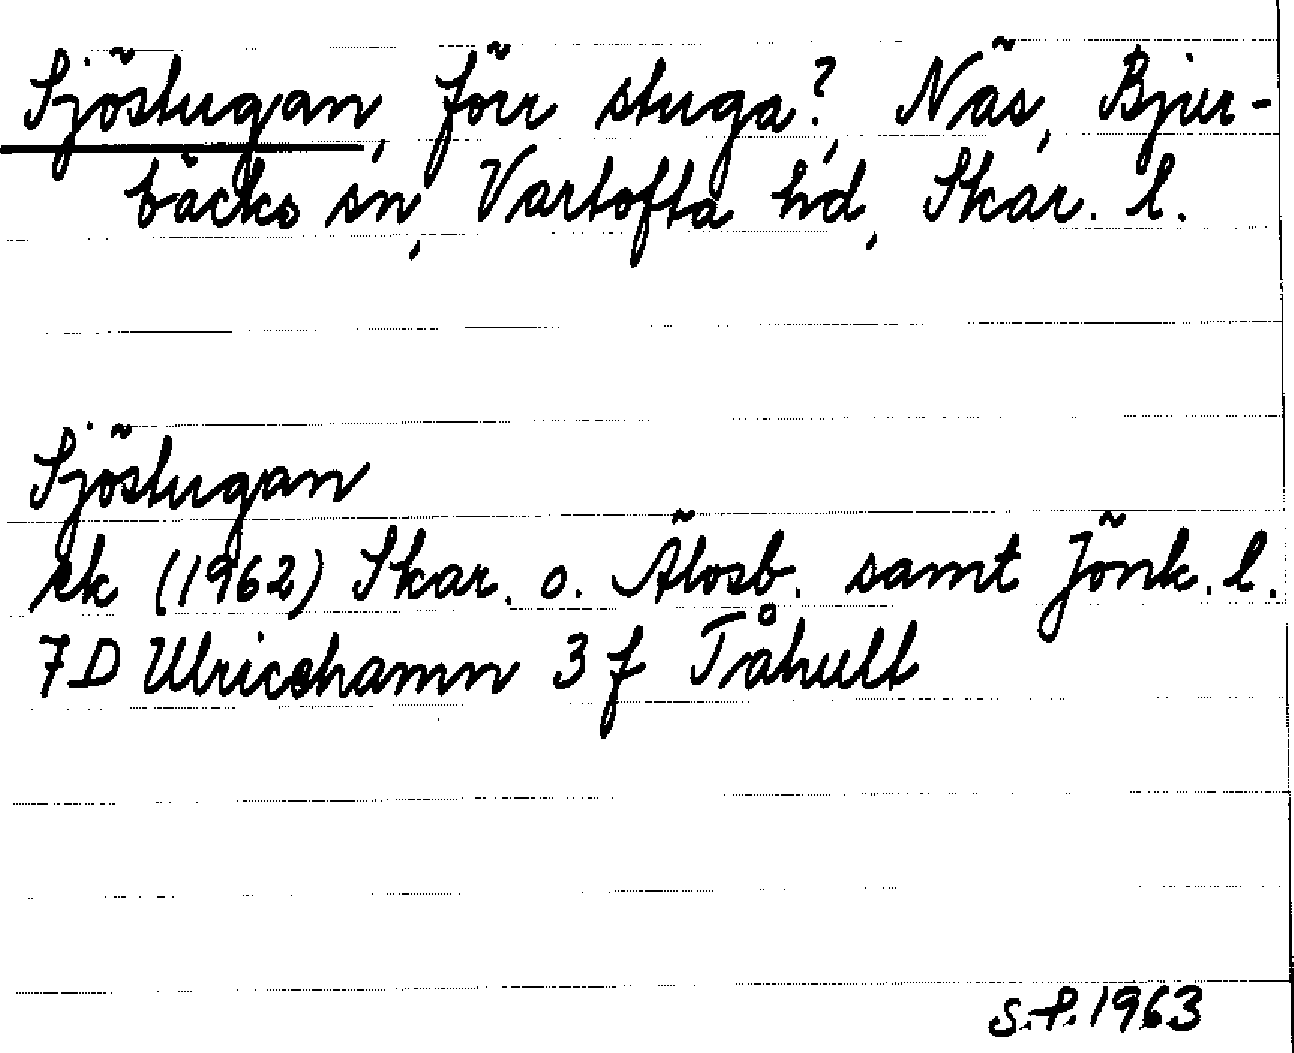 Sjöstugan, förr stuga?, Näs, Bjur-
bäcks sn, Vartofta hd, Skar. l.
Sjöstugan
ek (1962) Skar. o. Älvsb. samt Jönk. l.
7D Ulricehamn 3 f Tåhult
S.F. 1963